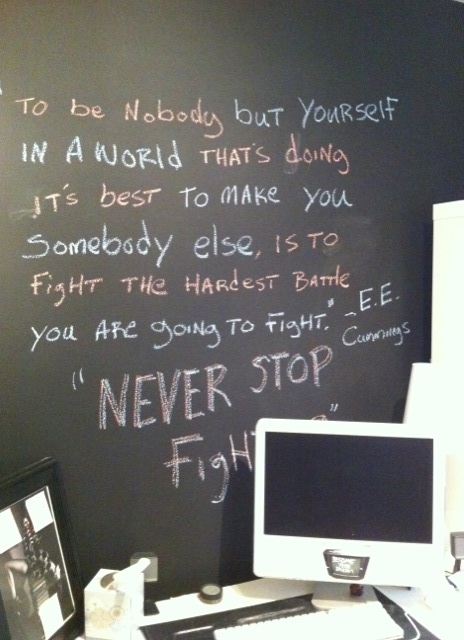 TO be Nobody buT YOURSELF
IN A WORLD THAT'S doing
IT'S best TO MAKE YOU
Somebody else, IS TO
FigHT THE HARDEST BATTlE
YOU ARE gOING TO FigHT." - E.E.
Cummings
"NEVER STOP
FigH "